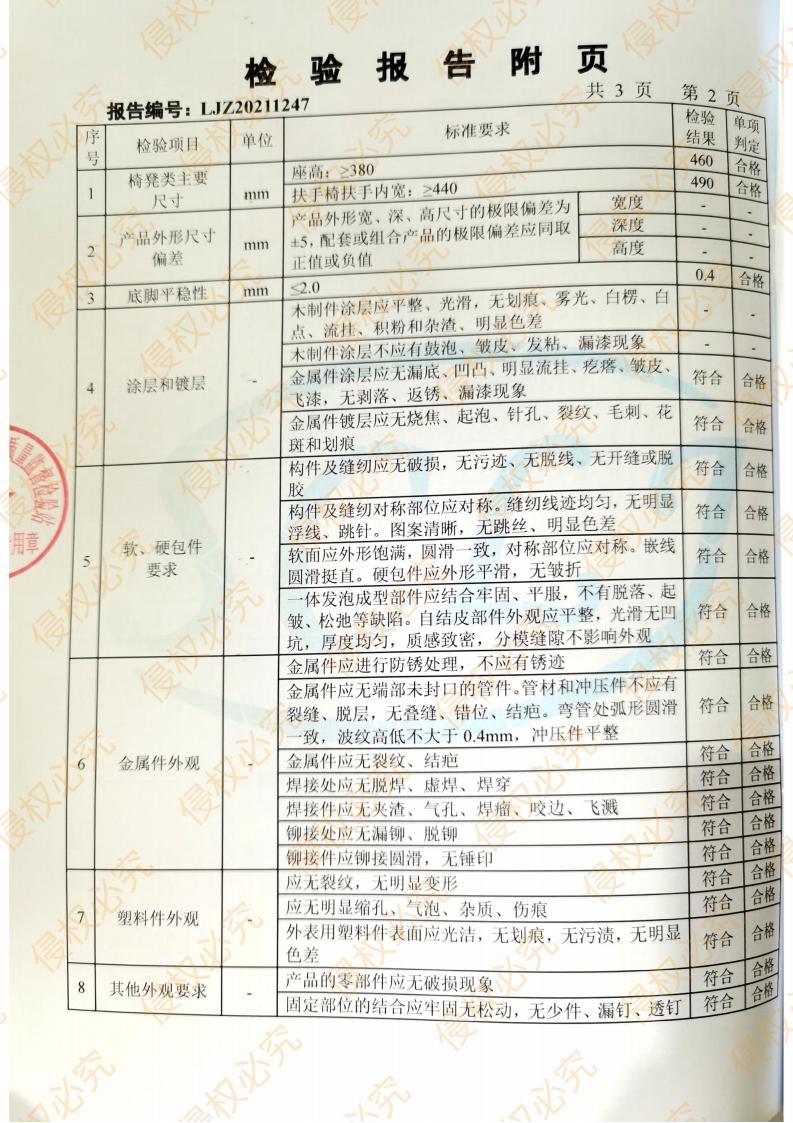 检验报告附页
报告编号：LJZ20211247
共 3 页 第 2 页
序号 检验项目 单位 标准要求 检验结果 单项判定
1 椅凳类主要尺寸 mm 座高：≥380 460 合格
扶手椅扶手内宽：≥440 490 合格
2 产品外形尺寸偏差 mm 产品外形宽、深、高尺寸的极限偏差为 宽度 - -
±5，配套或组合产品的极限偏差应同取 深度 - -
正值或负值 高度 - -
3 底脚平稳性 mm ≤2.0 0.4 合格
4 涂层和镀层 - 木制件涂层应平整、光滑，无划痕、雾光、白楞、白
点、流挂、积粉和杂渣、明显色差 - -
木制件涂层不应有鼓泡、皱皮、发粘、漏漆现象 - -
金属件涂层应无漏底、凹凸、明显流挂、疙瘩、皱皮、
飞漆，无剥落、返锈、漏漆现象 符合 合格
金属件镀层应无烧焦、起泡、针孔、裂纹、毛刺、花
斑和划痕 符合 合格
5 软、硬包件要求 - 构件及缝纫应无破损，无污迹、无脱线、无开缝或脱
胶 符合 合格
构件及缝纫对称部位应对称。缝纫线迹均匀，无明显
浮线、跳针。图案清晰，无跳丝、明显色差 符合 合格
软面应外形饱满，圆滑一致，对称部位应对称。嵌线
圆滑挺直。硬包件应外形平滑，无皱折 符合 合格
一体发泡成型部件应结合牢固、平服，不有脱落、起
皱、松弛等缺陷。自结皮部件外观应平整，光滑无凹
坑，厚度均匀，质感致密，分模缝隙不影响外观 符合 合格
6 金属件外观 - 金属件应进行防锈处理，不应有锈迹 符合 合格
金属件应无端部未封口的管件。管材和冲压件不应有
裂缝、脱层，无叠缝、错位、结疤。弯管处弧形圆滑
一致，波纹高低不大于 0.4mm，冲压件平整 符合 合格
金属件应无裂纹、结疤 符合 合格
焊接处应无脱焊、虚焊、焊穿 符合 合格
焊接件应无夹渣、气孔、焊瘤、咬边、飞溅 符合 合格
铆接处应无漏铆、脱铆 符合 合格
铆接件应铆接圆滑，无锤印 符合 合格
7 塑料件外观 - 应无裂纹，无明显变形 符合 合格
应无明显缩孔，气泡、杂质、伤痕 符合 合格
外表用塑料件表面应光洁，无划痕，无污渍，无明显
色差 符合 合格
8 其他外观要求 - 产品的零部件应无破损现象 符合 合格
固定部位的结合应牢固无松动，无少件、漏钉、透钉 符合 合格
质量监督检验站
用章
侵权必究